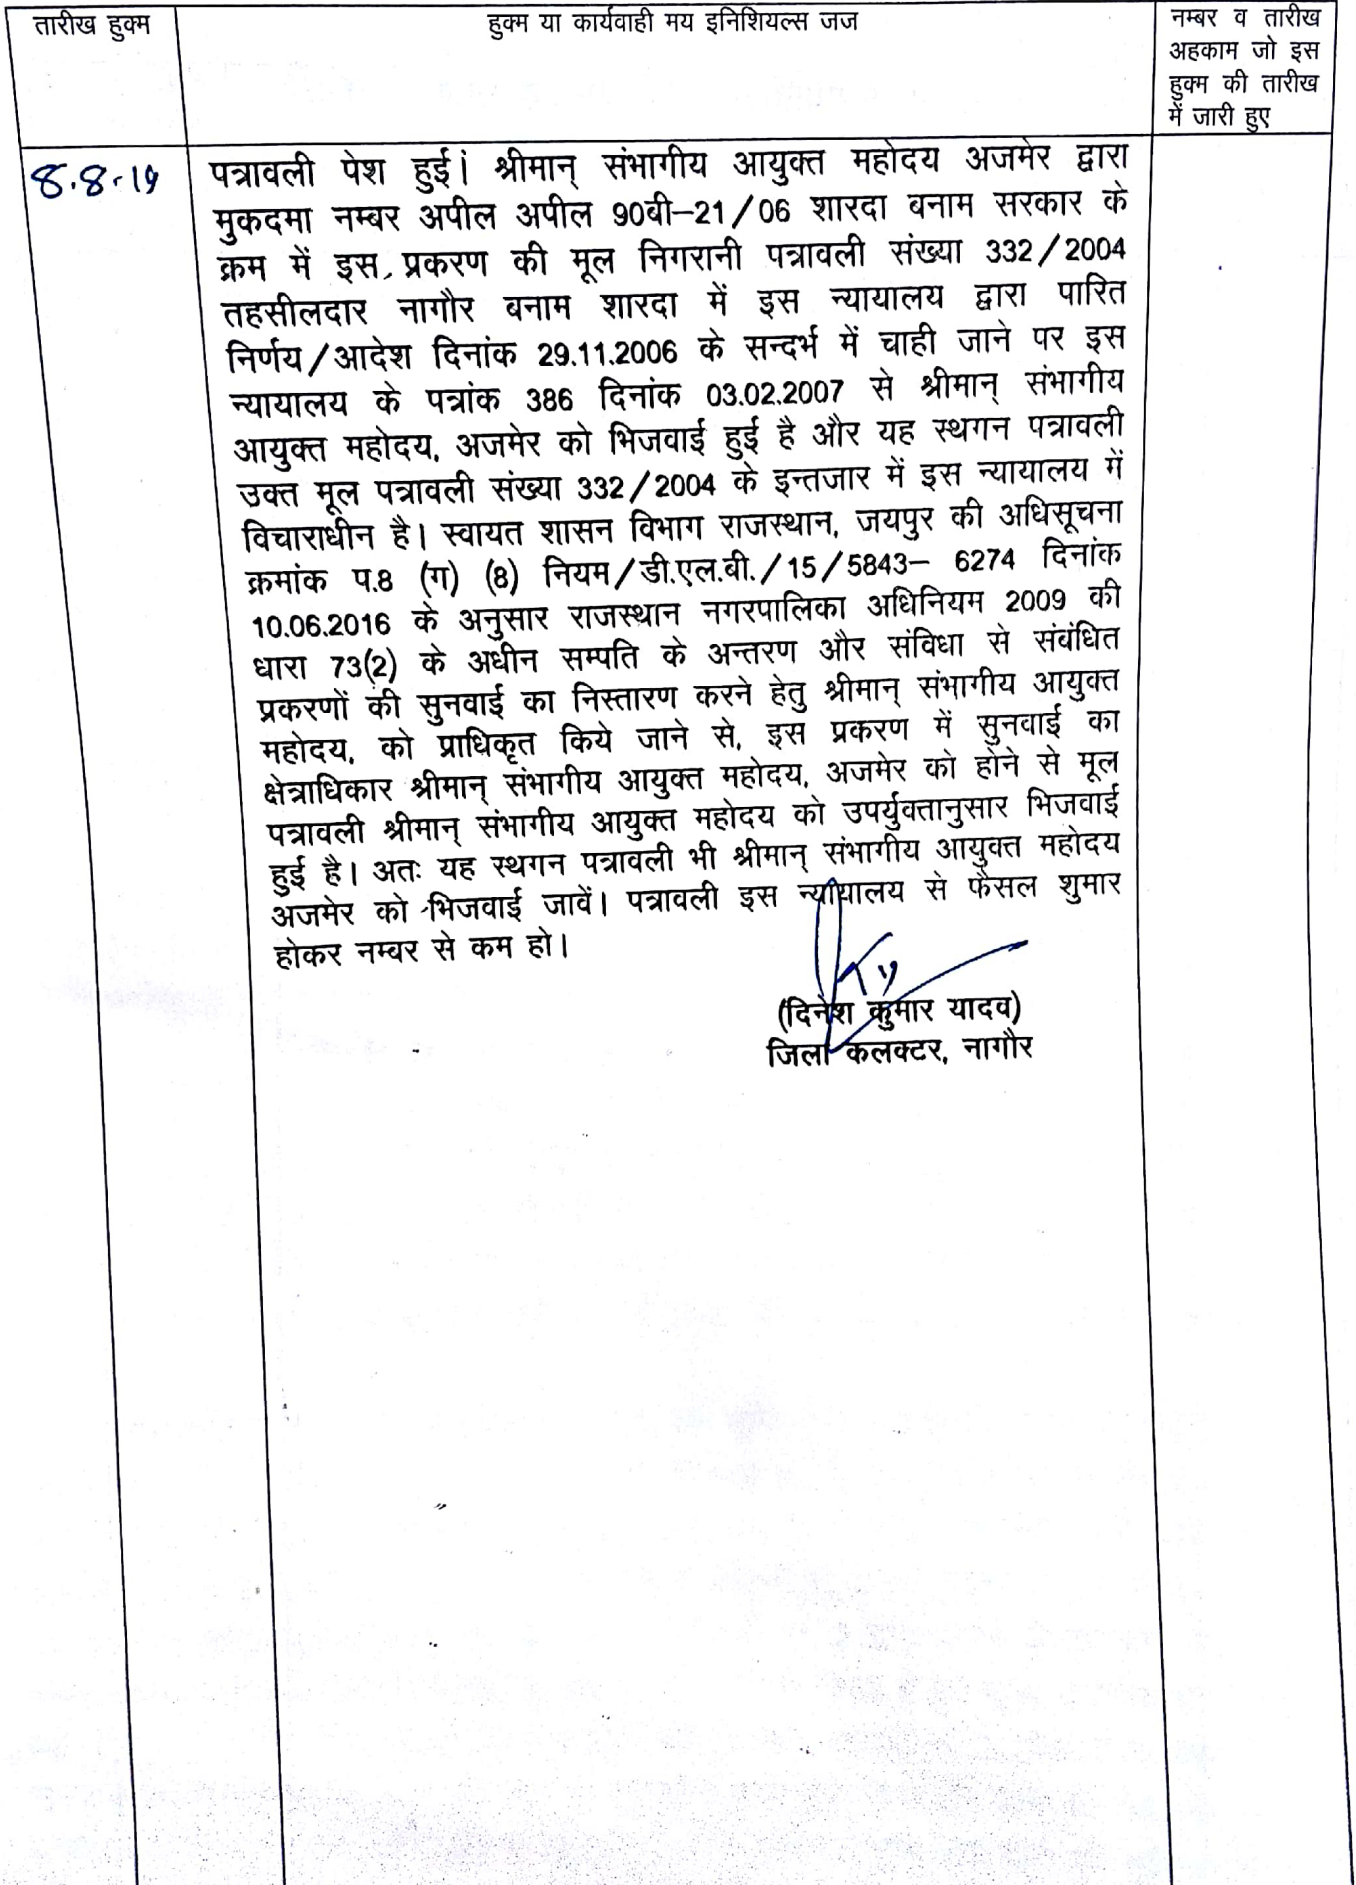 तारीख हुक्म
हुक्म या कार्यवाही मय इनिशियल्स जज
नम्बर व तारीख
अहकाम जो इस
हुक्म की तारीख
में जारी हुए
8.8.19
पत्रावली पेश हुई। श्रीमान् संभागीय आयुक्त महोदय अजमेर द्वारा
मुकदमा नम्बर अपील अपील 90बी–21/06 शारदा बनाम सरकार के
क्रम में इस प्रकरण की मूल निगरानी पत्रावली संख्या 332/2004
तहसीलदार नागौर बनाम शारदा में इस न्यायालय द्वारा पारित
निर्णय/आदेश दिनांक 29.11.2006 के सन्दर्भ में चाही जाने पर इस
न्यायालय के पत्रांक 386 दिनांक 03.02.2007 से श्रीमान् संभागीय
आयुक्त महोदय, अजमेर को भिजवाई हुई है और यह स्थगन पत्रावली
उक्त मूल पत्रावली संख्या 332/2004 के इन्तजार में इस न्यायालय में
विचाराधीन है। स्वायत शासन विभाग राजस्थान, जयपुर की अधिसूचना
क्रमांक प.8 (ग) (8) नियम/डी.एल.बी./15/5843– 6274 दिनांक
10.06.2016 के अनुसार राजस्थान नगरपालिका अधिनियम 2009 की
धारा 73(2) के अधीन सम्पति के अन्तरण और संविधा से संबंधित
प्रकरणों की सुनवाई का निस्तारण करने हेतु श्रीमान् संभागीय आयुक्त
महोदय, को प्राधिकृत किये जाने से, इस प्रकरण में सुनवाई का
क्षेत्राधिकार श्रीमान् संभागीय आयुक्त महोदय, अजमेर को होने से मूल
पत्रावली श्रीमान् संभागीय आयुक्त महोदय को उपर्युक्तानुसार भिजवाई
हुई है। अतः यह स्थगन पत्रावली भी श्रीमान् संभागीय आयुक्त महोदय
अजमेर को भिजवाई जावें। पत्रावली इस न्यायालय से फैसल शुमार
होकर नम्बर से कम हो।
(दिनेश कुमार यादव)
जिला कलक्टर, नागौर